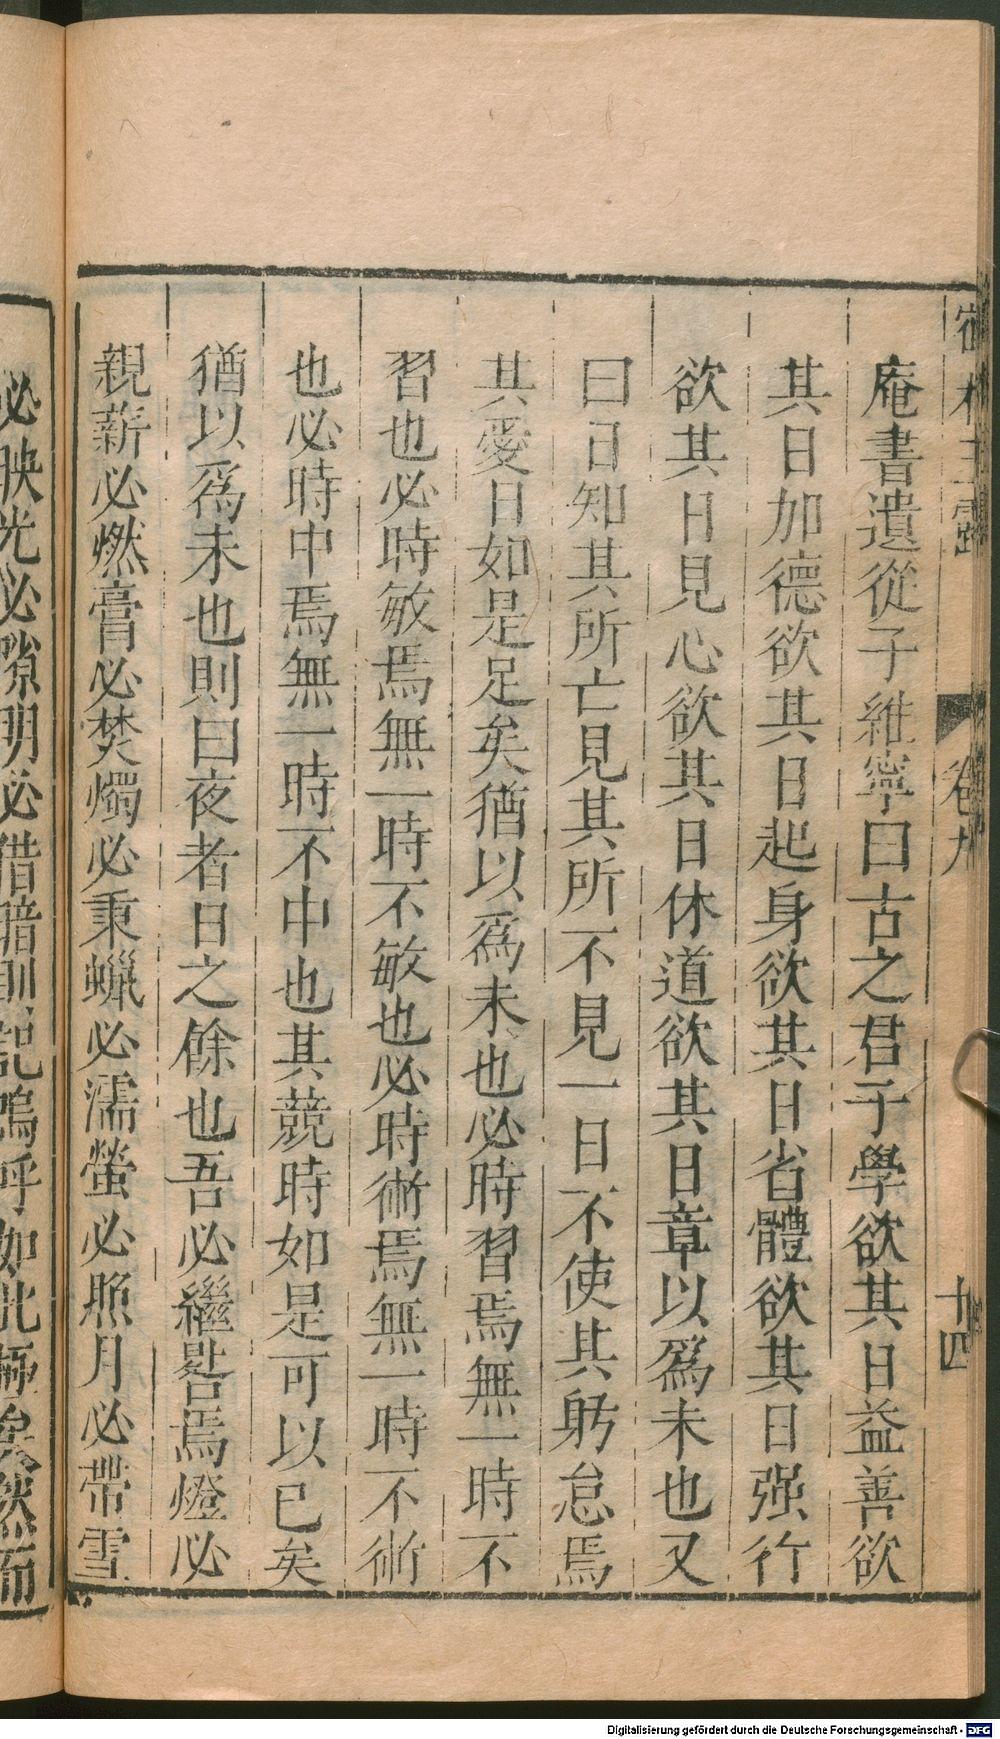 卷九
十四
庵書遺從子維寧曰古之君子學欲其日益善欲
其日加德欲其日起身欲其日省體欲其日强行
欲其日見心欲其日休道欲其日章以爲未也又
曰日知其所亡見其所不見一日不使其躬怠焉
其愛日如是足矣猶以爲未也必時習焉無一時不
習也必時敏焉無一時不敏也必時術焉無一時不術
也必時中焉無一時不中也其競時如是可以已矣
猶以爲未也則曰夜者日之餘也吾必繼晷焉燈必
親薪必燃膏必焚燭必秉蠟必濡螢必照月必帶雪
必映光必隙明必借暗則記嗚呼如此極矣然而
Digitalisierung gefördert durch die Deutsche Forschungsgemeinschaft - DFG